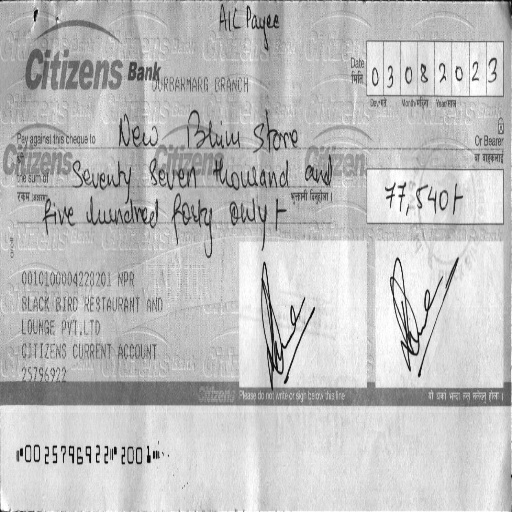 A/C Payee
Citizens Bank
DURBARMARG BRANCH
Date मिति 03082023
Day/गते Month/महिना Year/साल
Pay against this cheque to New Bhim Store Or Bearer
वा वाहकलाई
the sum of Seventy Seven thousand and
रकम (अक्षरमा) five hundred forty only/- भुक्तानी दिनुहोला । 77,540/-
0010100004228201 NPR
BLACK BIRD RESTAURANT AND
LOUNGE PVT.LTD
CITIZENS CURRENT ACCOUNT
25796922
Please do not write or sign below this line
⑈0025796922⑈2001